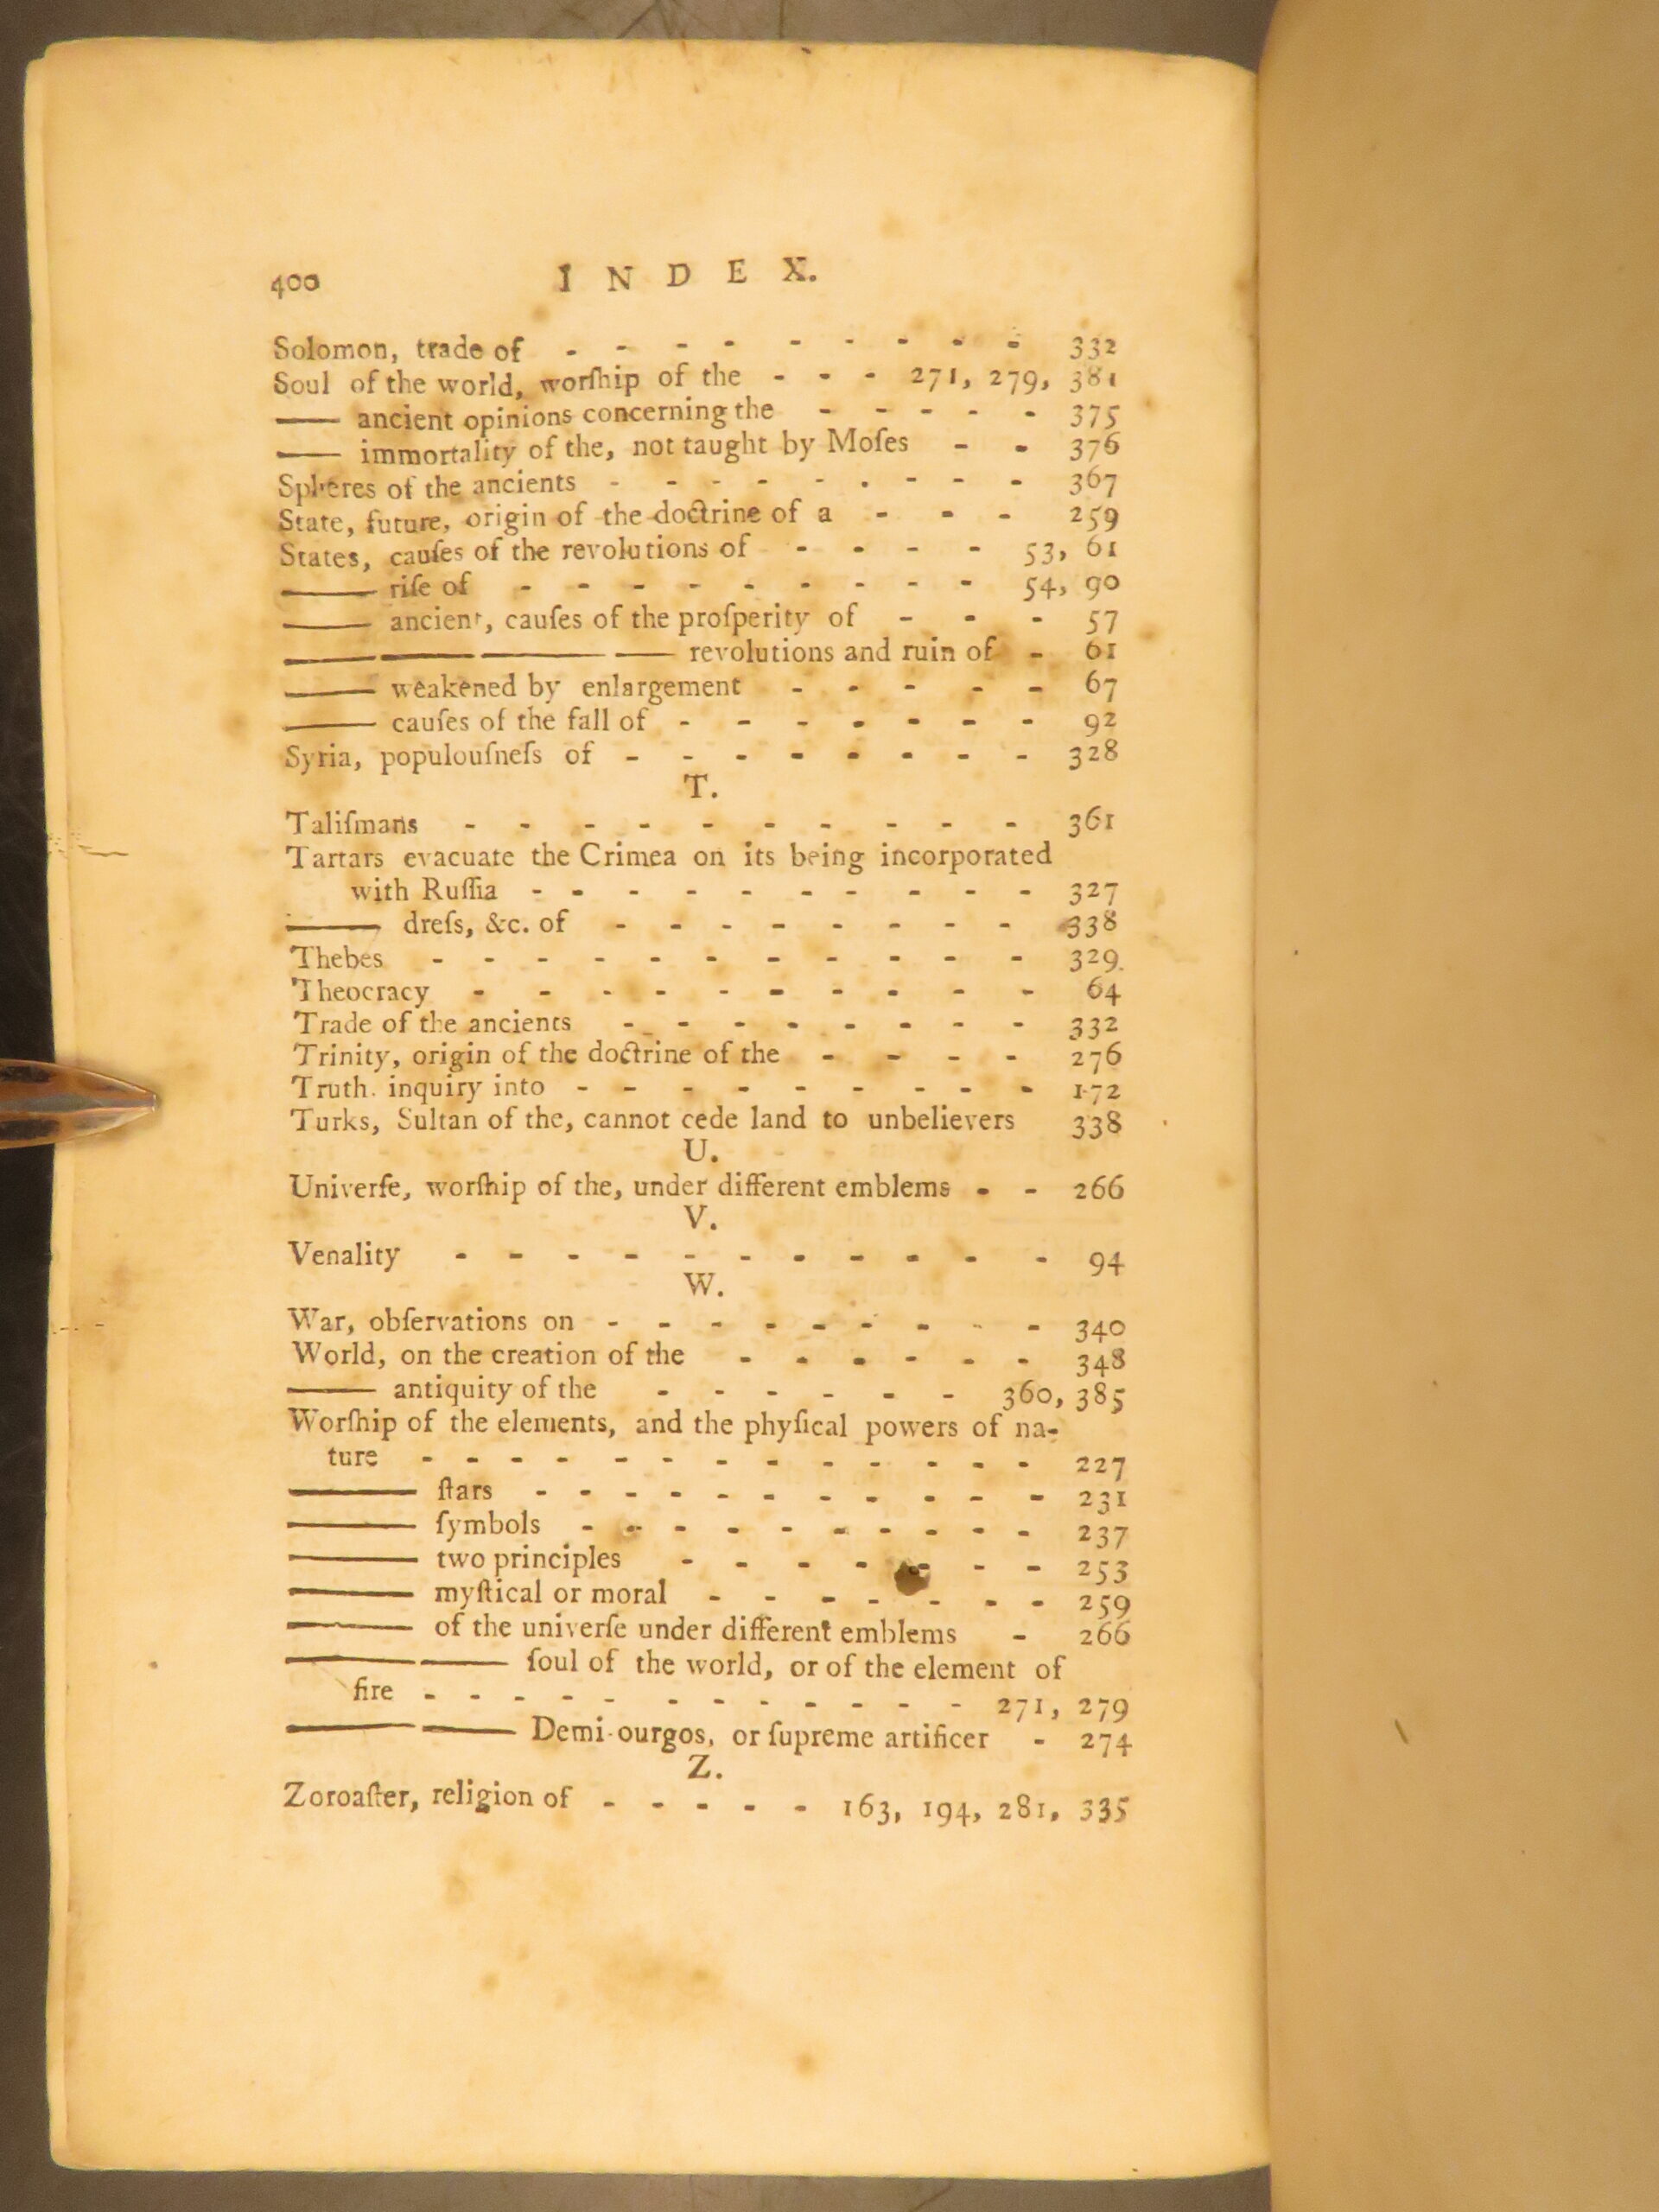 400 INDEX.
Solomon, trade of - - - - - - - - - 332
Soul of the world, worſhip of the - - - 271, 279, 381
—— ancient opinions concerning the - - - - - 375
—— immortality of the, not taught by Moſes - - 376
Spheres of the ancients - - - - - - - - 367
State, future, origin of the doctrine of a - - - 259
States, cauſes of the revolutions of - - - - 53, 61
—— riſe of - - - - - - - - - 54, 90
—— ancient, cauſes of the proſperity of - - - 57
—— —— —— —— revolutions and ruin of - 61
—— weakened by enlargement - - - - - 67
—— cauſes of the fall of - - - - - - - 92
Syria, populouſneſs of - - - - - - - - 328
T.
Taliſmans - - - - - - - - - - 361
Tartars evacuate the Crimea on its being incorporated
with Ruſſia - - - - - - - - - - 327
—— dreſs, &c. of - - - - - - - - 338
Thebes - - - - - - - - - - - 329.
Theocracy - - - - - - - - - - 64
Trade of the ancients - - - - - - - - 332
Trinity, origin of the doctrine of the - - - - 276
Truth. inquiry into - - - - - - - - - 172
Turks, Sultan of the, cannot cede land to unbelievers 338
U.
Univerſe, worſhip of the, under different emblems - - 266
V.
Venality - - - - - - - - - - - 94
W.
War, obſervations on - - - - - - - - - 340
World, on the creation of the - - - - - - 348
—— antiquity of the - - - - - - 360, 385
Worſhip of the elements, and the phyſical powers of na-
ture - - - - - - - - - - - - - 227
—— ſtars - - - - - - - - - - 231
—— ſymbols - - - - - - - - - 237
—— two principles - - - - - - - 253
—— myſtical or moral - - - - - - - 259
—— of the univerſe under different emblems - 266
—— —— ſoul of the world, or of the element of
fire - - - - - - - - - - - 271, 279
—— —— Demi-ourgos, or ſupreme artificer - 274
Z.
Zoroaſter, religion of - - - - - 163, 194, 281, 335